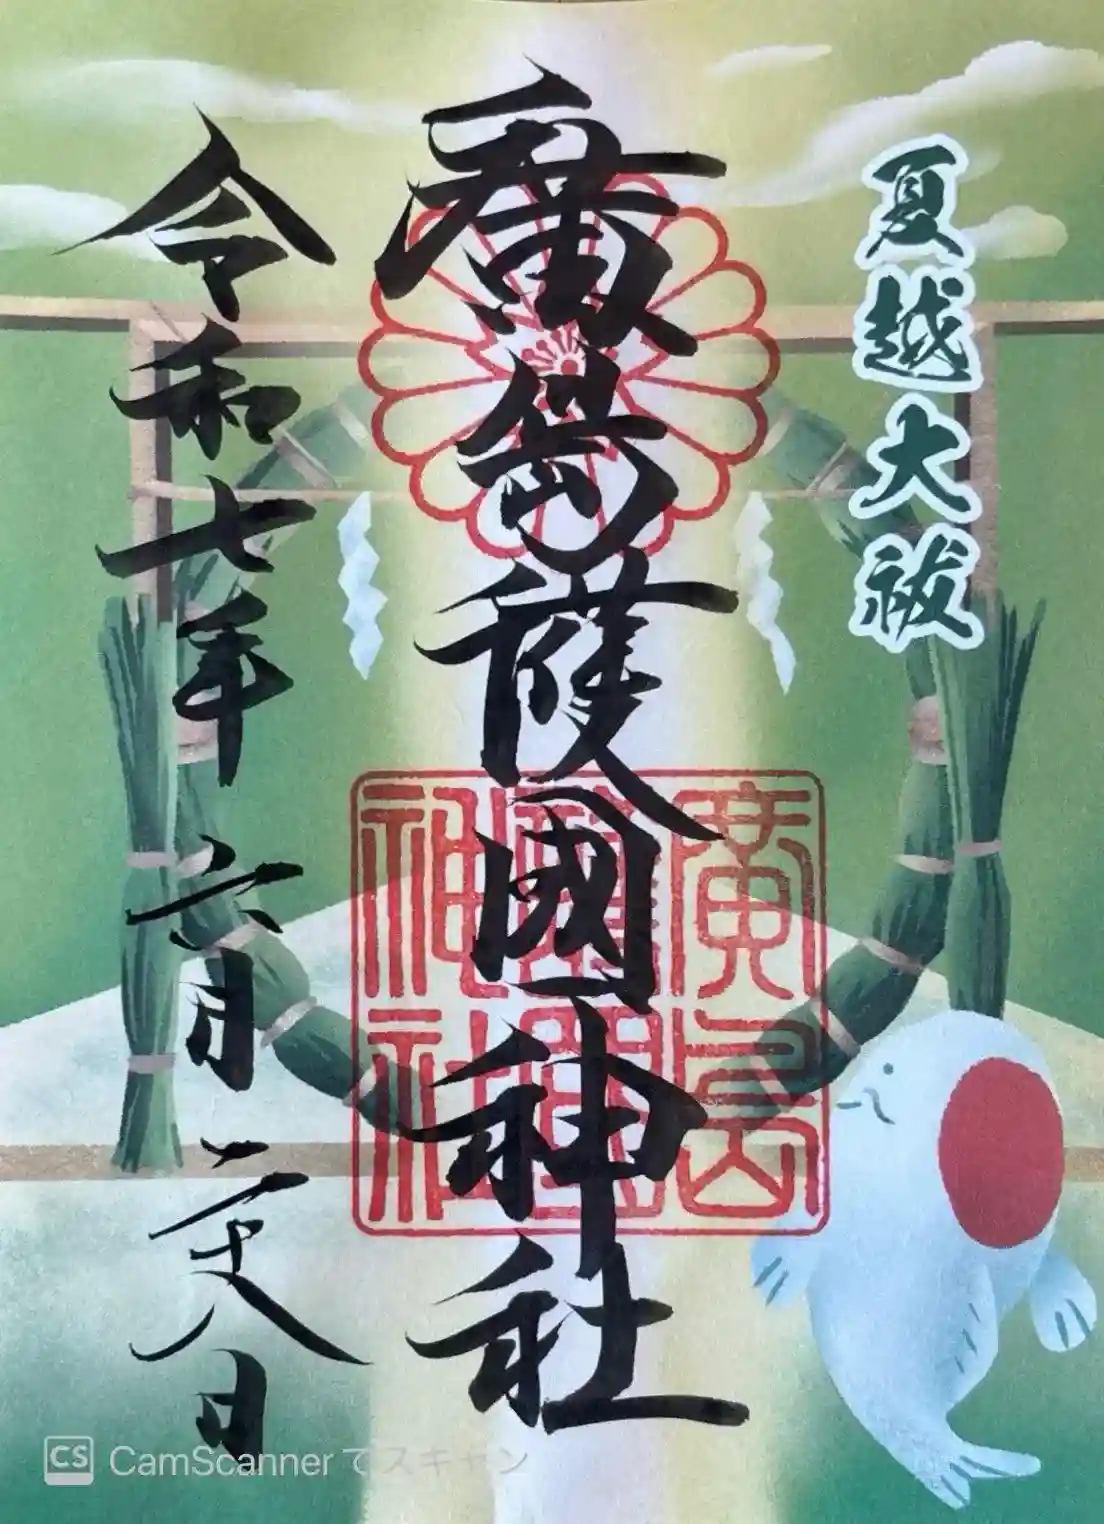 夏越大祓
廣島護國神社
令和七年六月二十八日
廣島
護國
神社
CS CamScannerでスキャン